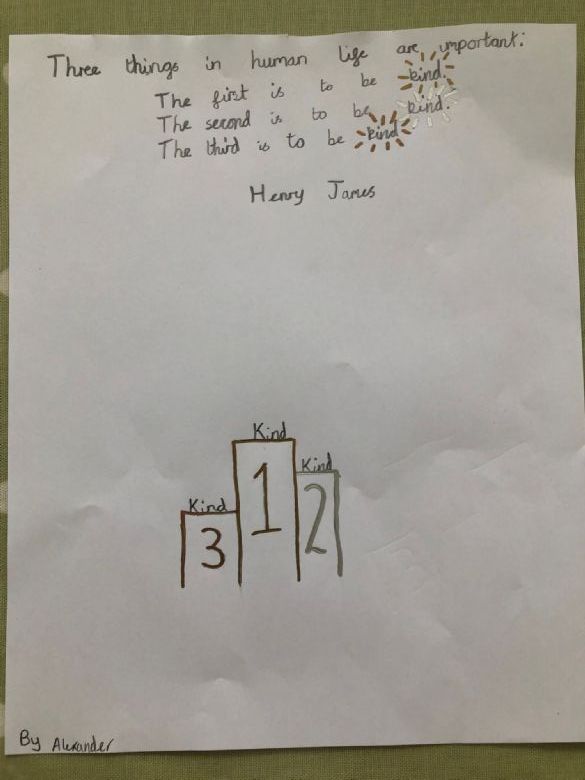 Three things in human life are important:
The first is to be kind.
The second is to be kind.
The third is to be kind
Henry James
Kind
Kind
Kind
1
2
3
By Alexander